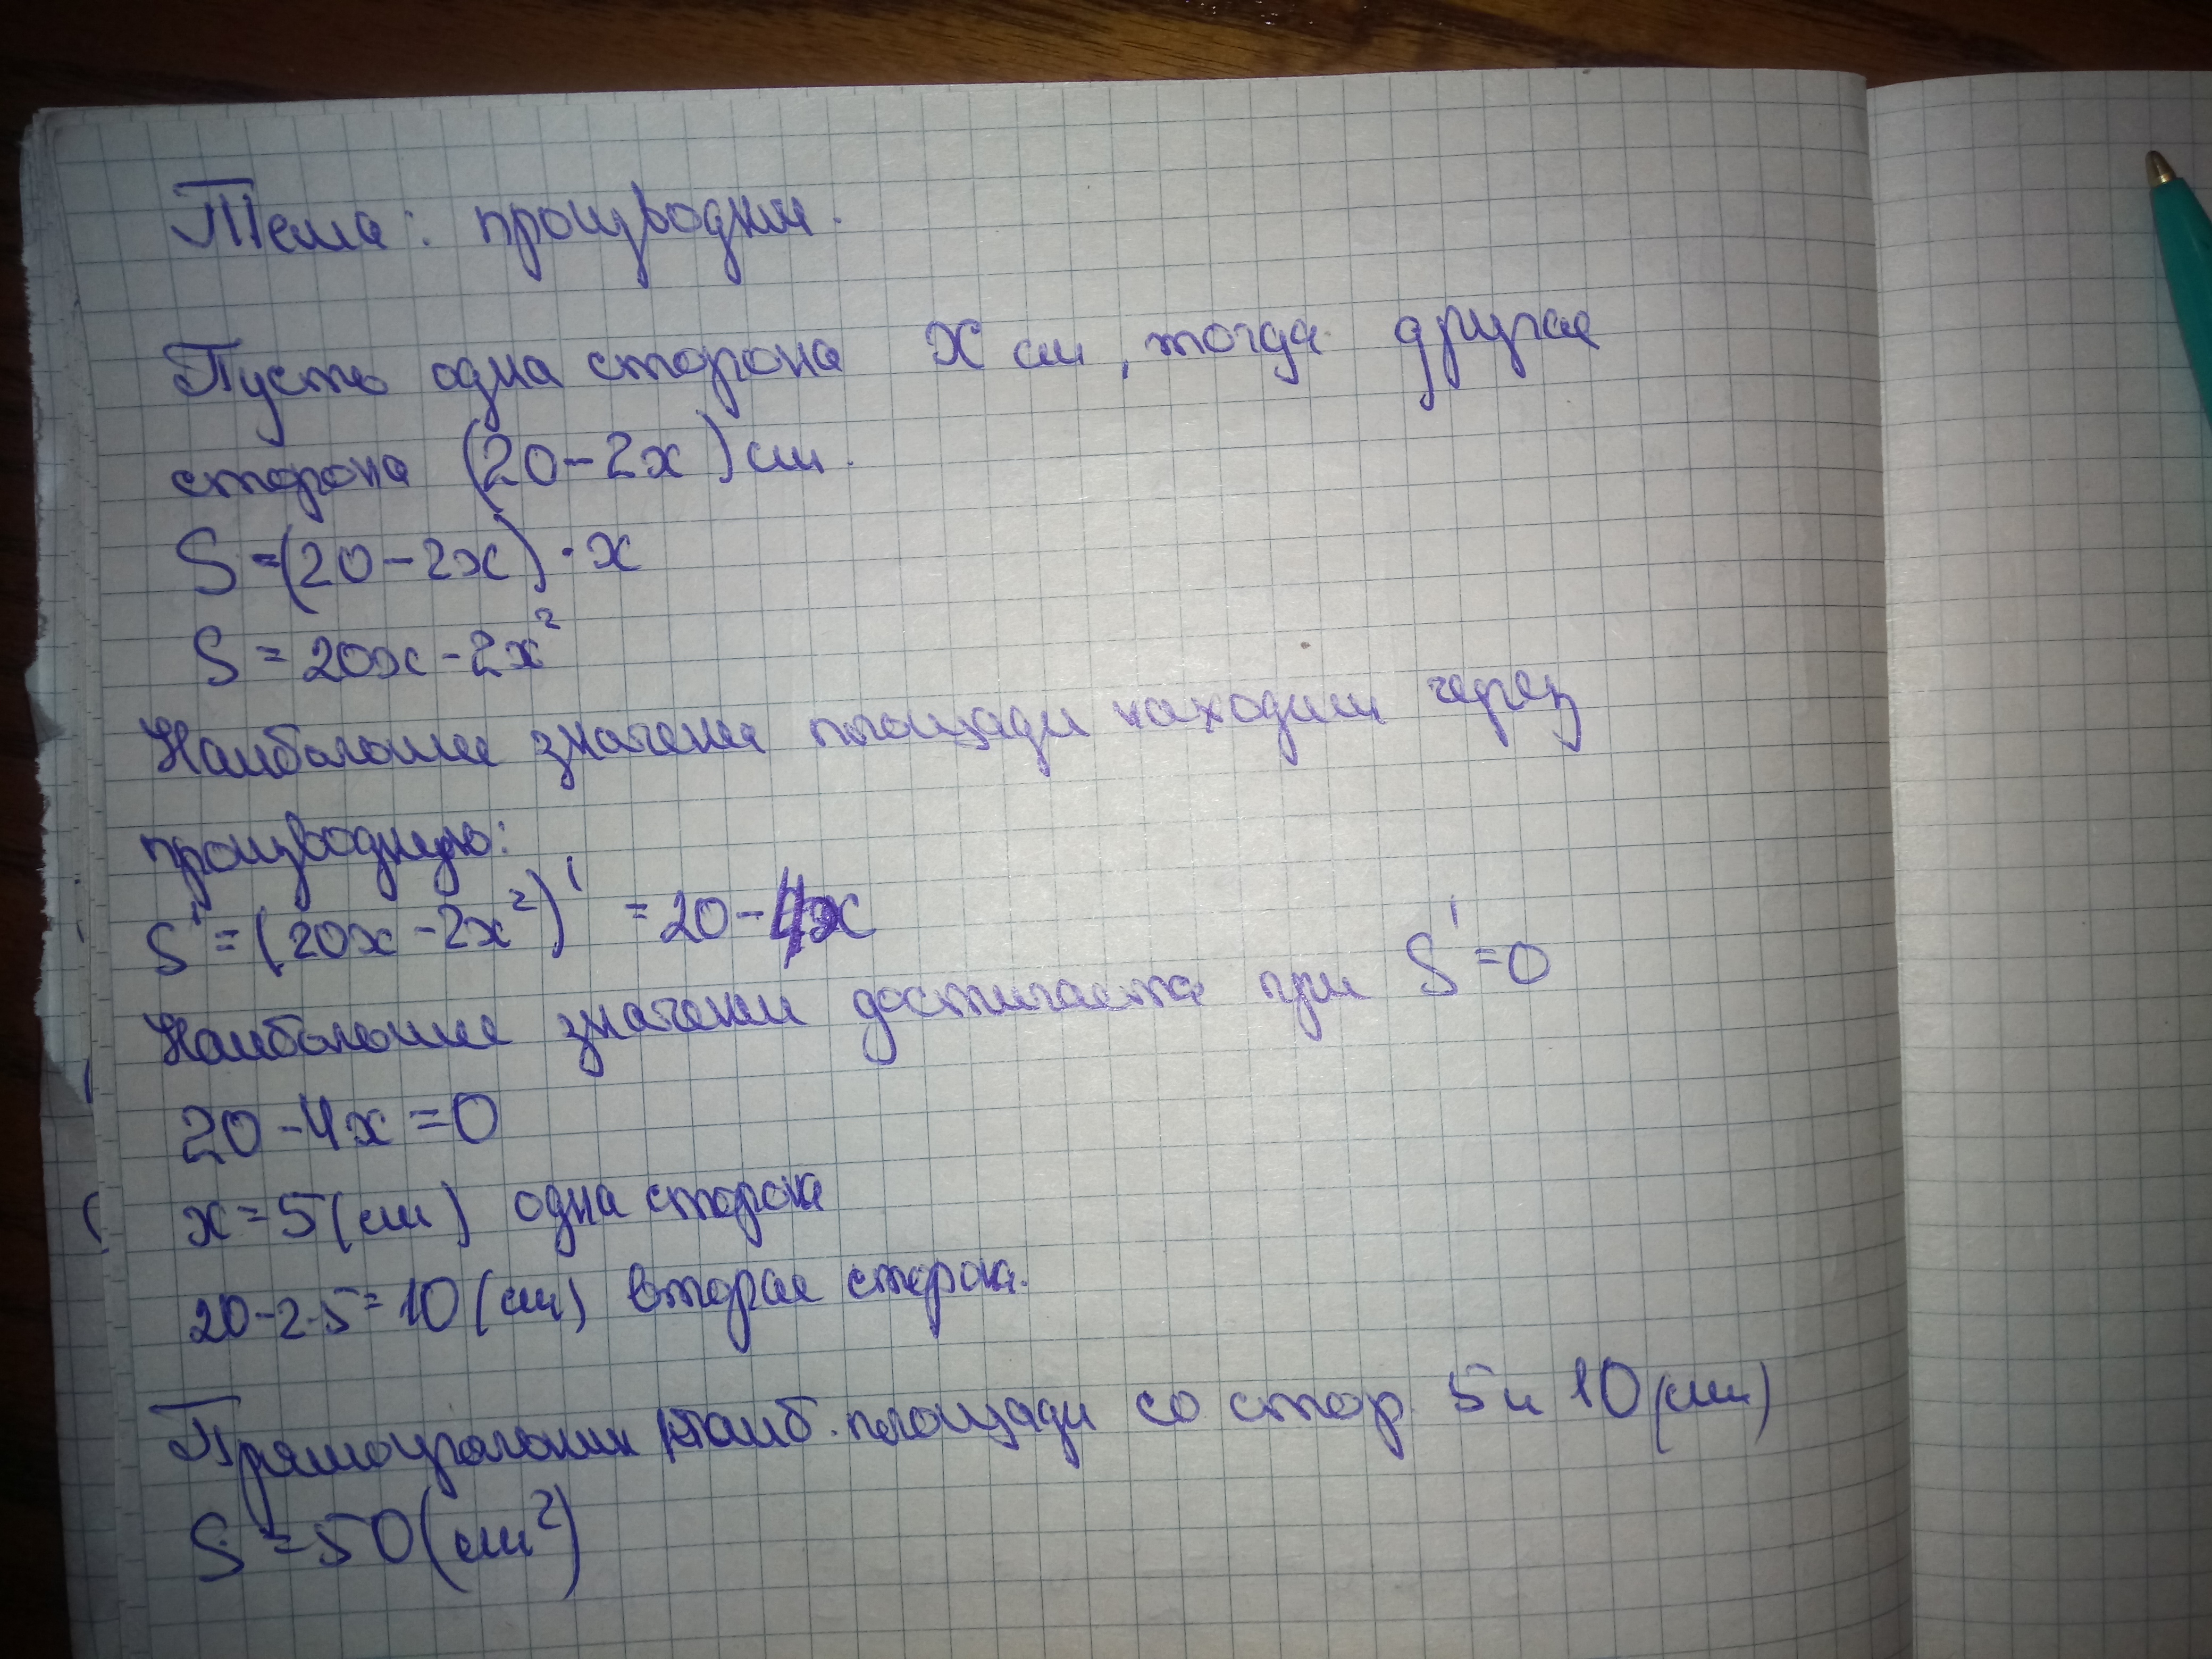 Тема: производни.
Пусть одна сторона x см, тогда другая
сторона (20-2x) см.
S=(20-2x)·x
S=20x-2x²
Наибольшее значение площади находим через
производную:
S'=(20x-2x²)' =20-4x
Наибольшее значение достигается при S'=0
20-4x=0
x=5(см) одна сторона
20-2·5=10(см) вторая сторона.
Прямоугольник наиб. площади со стор. 5 и 10(см)
S=50(см²)